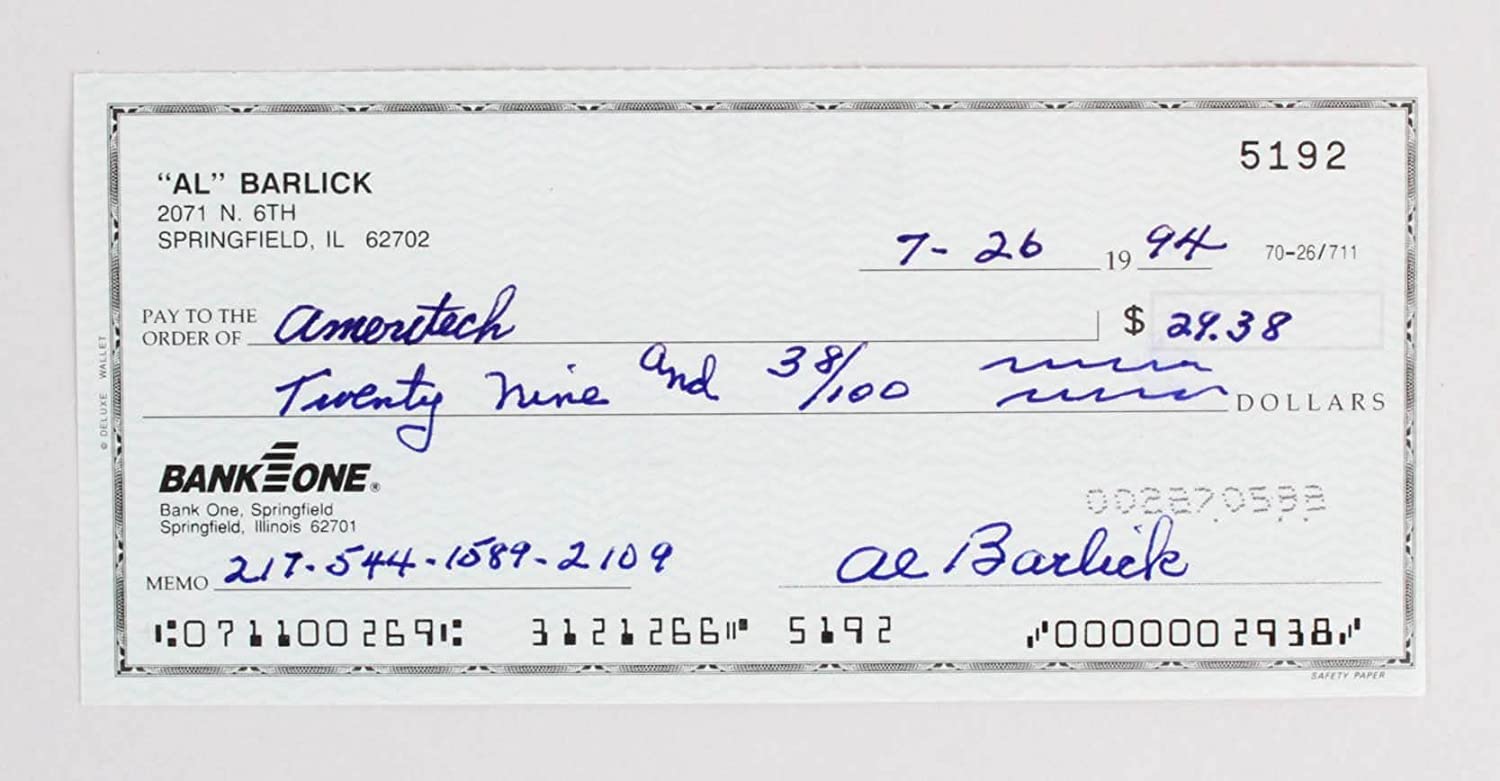 5192
“AL” BARLICK
2071 N. 6TH
SPRINGFIELD, IL 62702
7-26 19 94 70-26/711
PAY TO THE
ORDER OF Ameritech $ 29.38
Twenty Nine And 38/100 DOLLARS
© DELUXE WALLET
BANK ONE®
Bank One, Springfield
Springfield, Illinois 62701
002870588
MEMO 217-544-1589-2109 Al Barlick
⑆071100269⑆ 3121266⑈ 5192 ⑈0000002938⑈
SAFETY PAPER